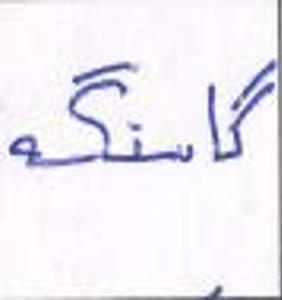 گاسنگه